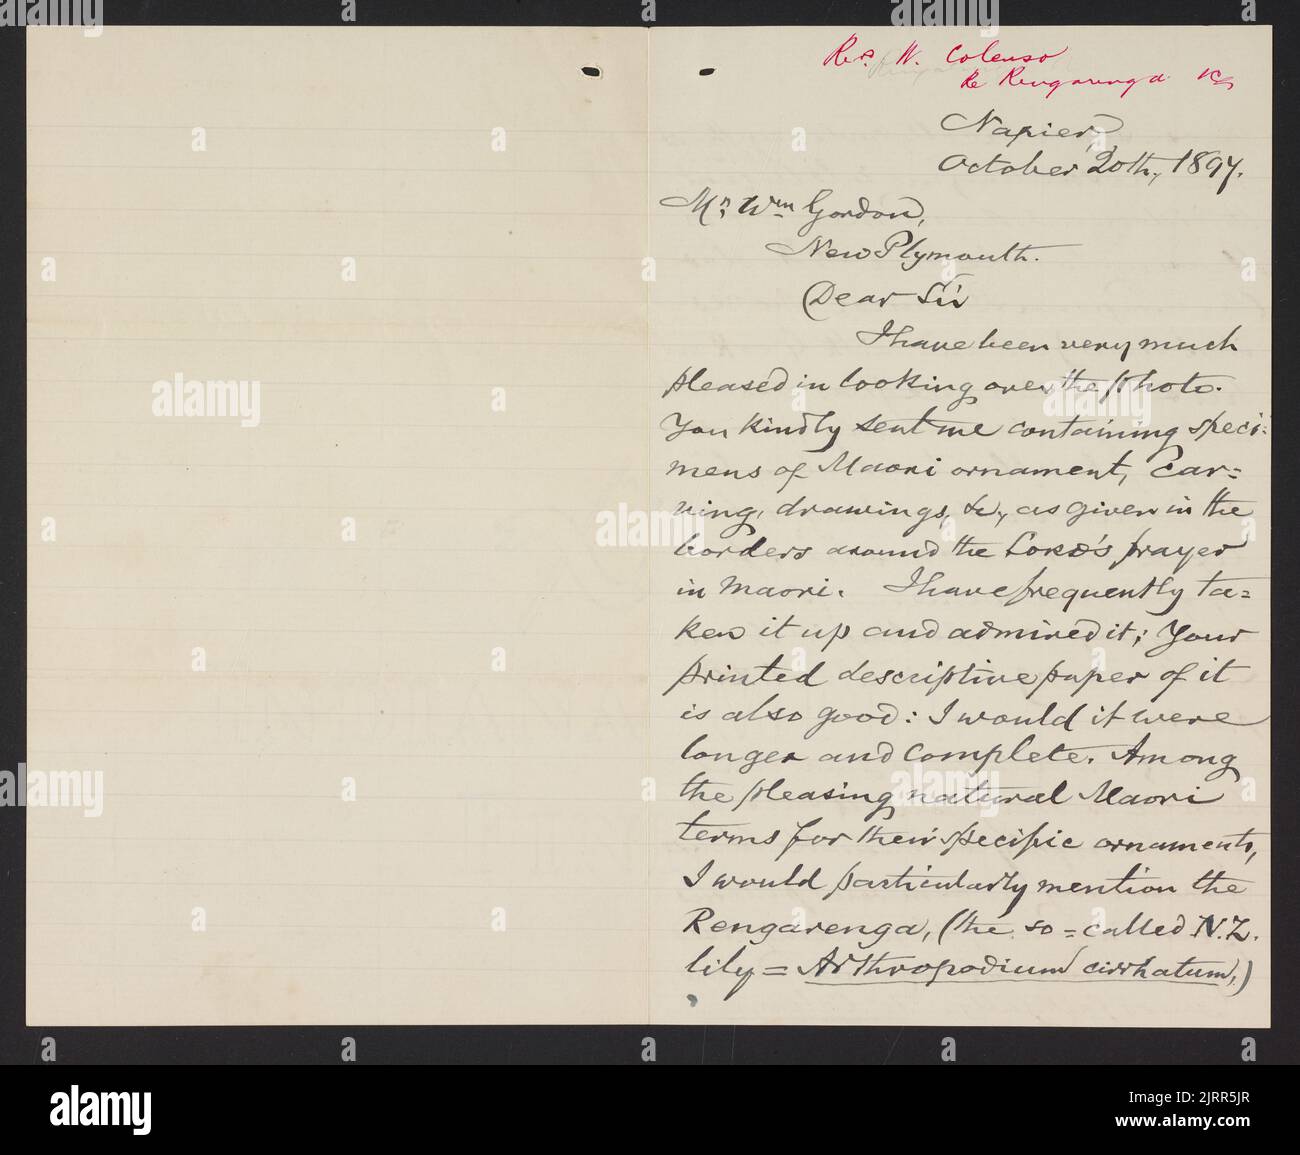 Rev. W. Colenso
re Rengarenga &c
Napier,
October 20th, 1897.
Mr. Wm Gordon,
New Plymouth.
Dear Sir
I have been very much
pleased in looking over the photo.
You kindly sent me containing speci=
mens of Maori ornament, Car=
ving, drawings, &c, as given in the
borders around the Lord's prayer
in Maori. I have frequently ta=
ken it up and admired it; Your
printed descriptive paper of it
is also good: I would it were
longer and complete. Among
the pleasing natural Maori
terms for their specific ornaments,
I would particularly mention the
Rengarenga, (the so=called N.Z.
lily = Arthropodium cirrhatum,)
alamy
alamy
alamy
alamy
alamy
alamy
Image ID: 2JRR5JR
www.alamy.com